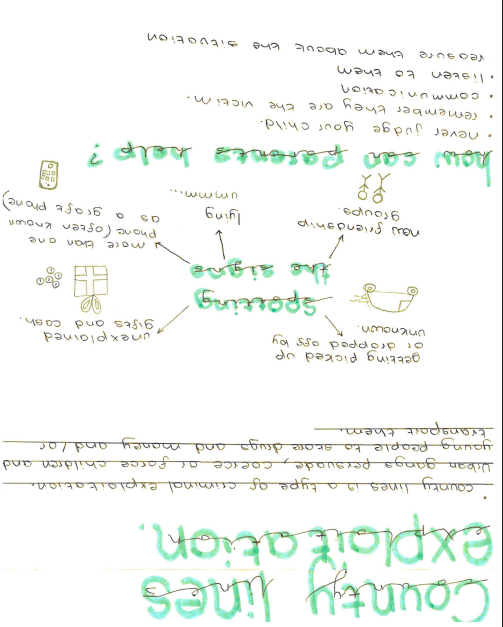 County lines
exploitation.
• county lines is a type of criminal exploitation.
Urban gangs persuade, coerce or force children and
young people to store drugs and money and/or
transport them.
getting picked up
or dropped off by
unknown.
unexplained
gifts and cash.
spotting
the signs
new friendship
groups.
lying
ummm...
more than one
phone (often known
as a graft phone)
how can parents help?
• never judge your child.
• remember they are the victim.
• communication
• listen to them
reasure them about the situation